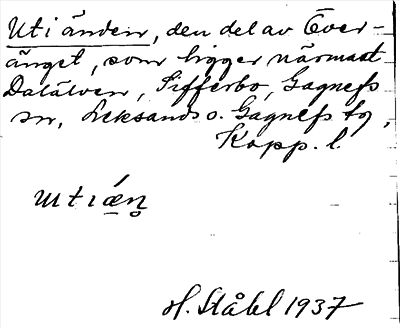 Uti änden, den del av Över-
änget, som ligger närmast
Dalälven, Sifferbo, Gagnefs
sn, Leksands o. Gagnefs tg,
Kopp. l.
utiǽn̥
H. Ståhl 1937